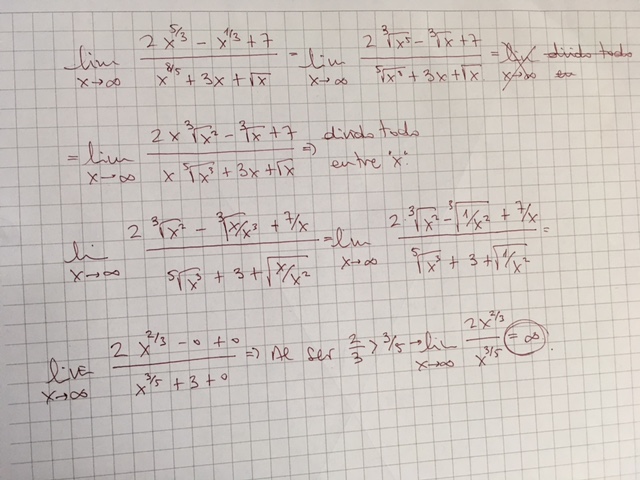 lim x→∞ (2x^{5/3} - x^{1/3} + 7)/(x^{8/5} + 3x + √x) = lim x→∞ (2∛x⁵ - ∛x + 7)/(⁵√x⁸ + 3x + √x) = lim x→∞ divido todo en
= lim x→∞ (2x∛x² - ∛x + 7)/(x ⁵√x³ + 3x + √x) ⇒ divido todo entre "x".
lim x→∞ (2∛x² - ∛(x/x³) + 7/x)/(⁵√x³ + 3 + √(x/x²)) = lim x→∞ (2∛x² - ∛(1/x²) + 7/x)/(⁵√x³ + 3 + √(1/x²)) =
lim x→∞ (2x^{2/3} - 0 + 0)/(x^{3/5} + 3 + 0) ⇒ Al ser 2/3 > 3/5 → lim x→∞ 2x^{2/3}/x^{3/5} = ∞.